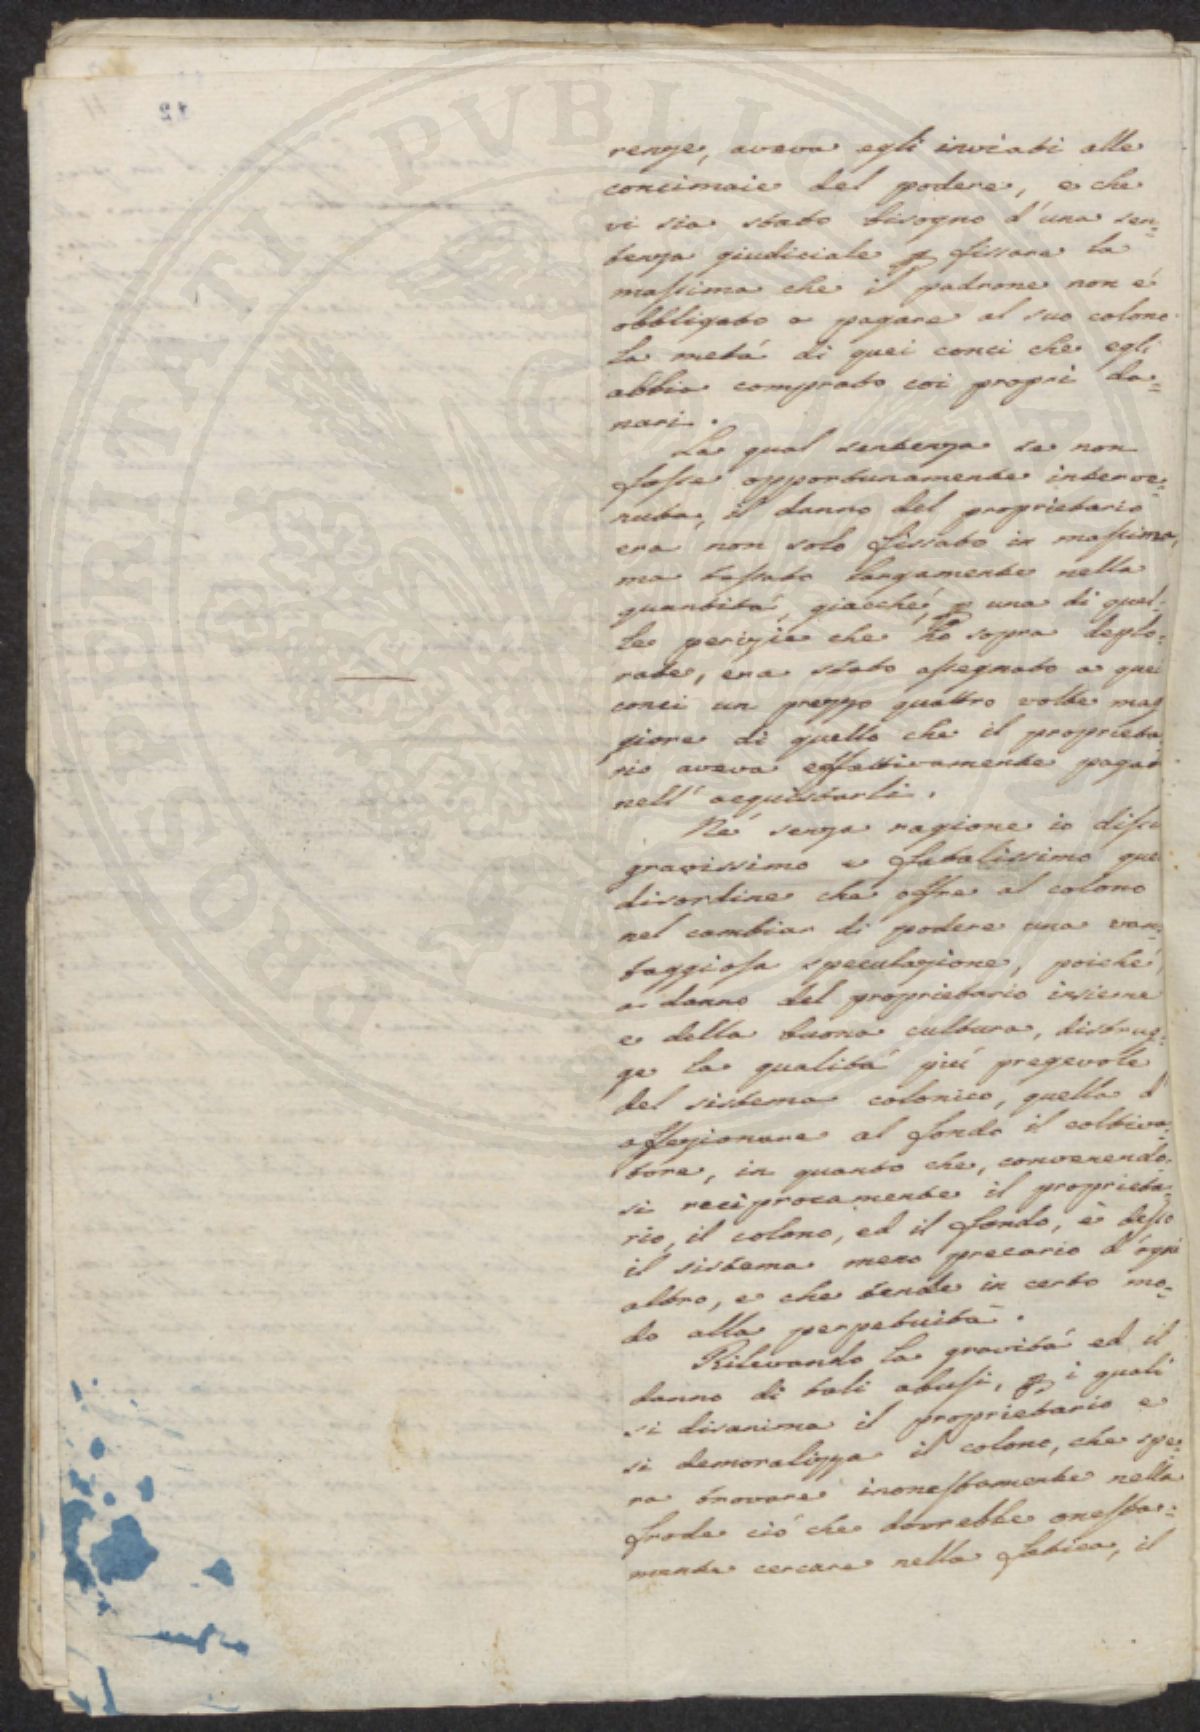 renze, aveva egli inviati alle
concimaie del podere, e che
vi sia stato bisogno d'una sen=
tenza giudiciale p fissare la
massima che il padrone non é
obbligato a pagare al suo colono
la metá di quei conci che egli
abbia comprato coi propri da=
nari.
La qual sentenza se non
fosse opportunamente interve=
nuta, il danno del proprietario
era non solo fissato in massima,
ma tassato largamente nella
quantitá, giacché, p una di quel=
le perizie che ho sopra deplo=
rate, era stato assegnato a quei
conci un prezzo quattro volte mag
giore di quello che il proprieta=
rio aveva effettivamente pagat
nell'acquistarli.
Né senza ragione io dissi
gravissimo e fatalissimo quel
disordine che offre al colono
nel cambiar di podere una van=
taggiosa speculazione, poiché,
a danno del proprietario insieme
e della buona cultura, distrug=
ge la qualitá piú pregevole
del sistema colonico, quella d'
affezionare al fondo il coltiva=
tore, in quanto che, convenendo=
si reciprocamente il proprieta=
rio, il colono, ed il fondo, è desso
il sistema meno precario d'ogni
altro, e che tende in certo mo=
do alla perpetuitá.
Rilevando la gravitá ed il
danno di tali abusi, p i quali
si disanima il proprietario e
si demoralizza il colono, che spe=
ra trovare inonestamente nella
frode ció che dovrebbe onesta=
mente cercare nella fatica, il
12
PROSPERITATI PVBLICAE